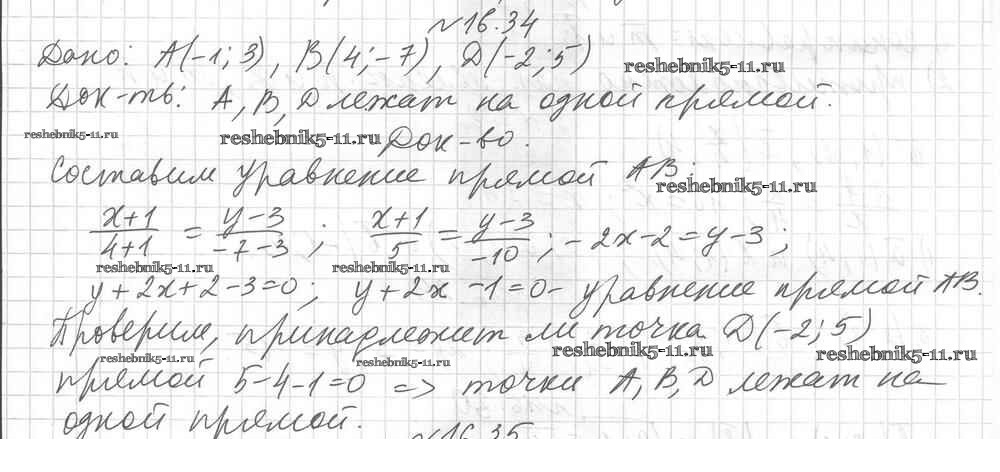 №16.34
Дано: A(-1; 3), B(4; -7), D(-2; 5)
reshebnik5-11.ru
Док-ть: A, B, D лежат на одной прямой.
reshebnik5-11.ru
reshebnik5-11.ru
Док-во.
Составим уравнение прямой AB:
reshebnik5-11.ru
(x+1)/(4+1) = (y-3)/(-7-3); (x+1)/5 = (y-3)/(-10); -2x-2=y-3;
reshebnik5-11.ru
reshebnik5-11.ru
y+2x+2-3=0; y+2x-1=0- уравнение прямой AB.
Проверим, принадлежит ли точка D(-2; 5)
reshebnik5-11.ru
reshebnik5-11.ru
reshebnik5-11.ru
reshebnik5-11.ru
прямой 5-4-1=0 => точки A, B, D лежат на
одной прямой.
№16.35